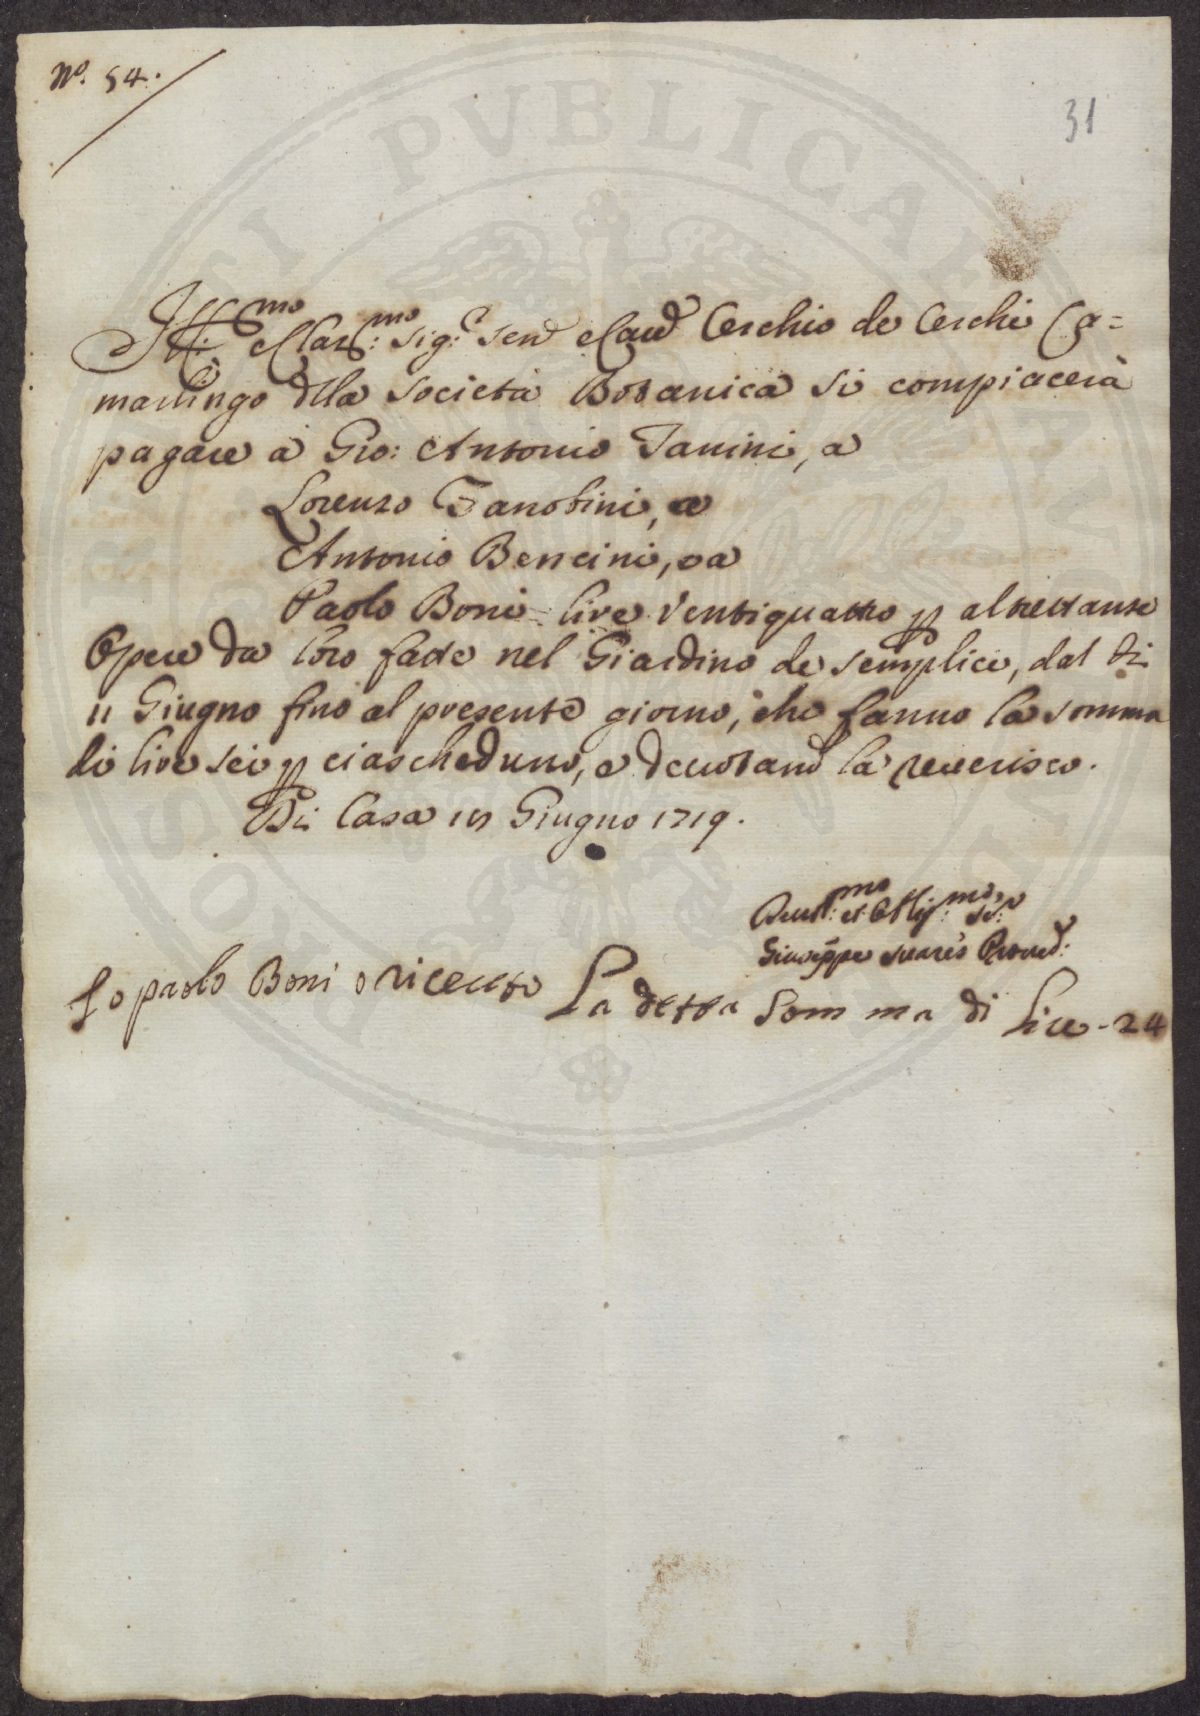 N.o 54.
31
Ill.mo e Clar.mo Sig.r Sen.  Cerchio de Cerchi Ca=
marlingo dlla Società Botanica si compiacerà
pagare à Gio: Antonio Tanini, a
Lorenzo Zanobini, e
Antonio Bencini, e a
Paolo Boni lire Ventiquattro p altrettante
Opere da loro fatte nel Giardino de semplici, dal dì
11 Giugno fino al presente giorno, che fanno la somma
di lire sei p ciascheduno, e devotam la reverisco.
Di Casa Giugno 1719.
Devot.mo et Obblig.mo se:
Giuseppe Suares Proved:
Io paolo Boni o riceuto La detta Somma di Lire - 24
PVBLICAE